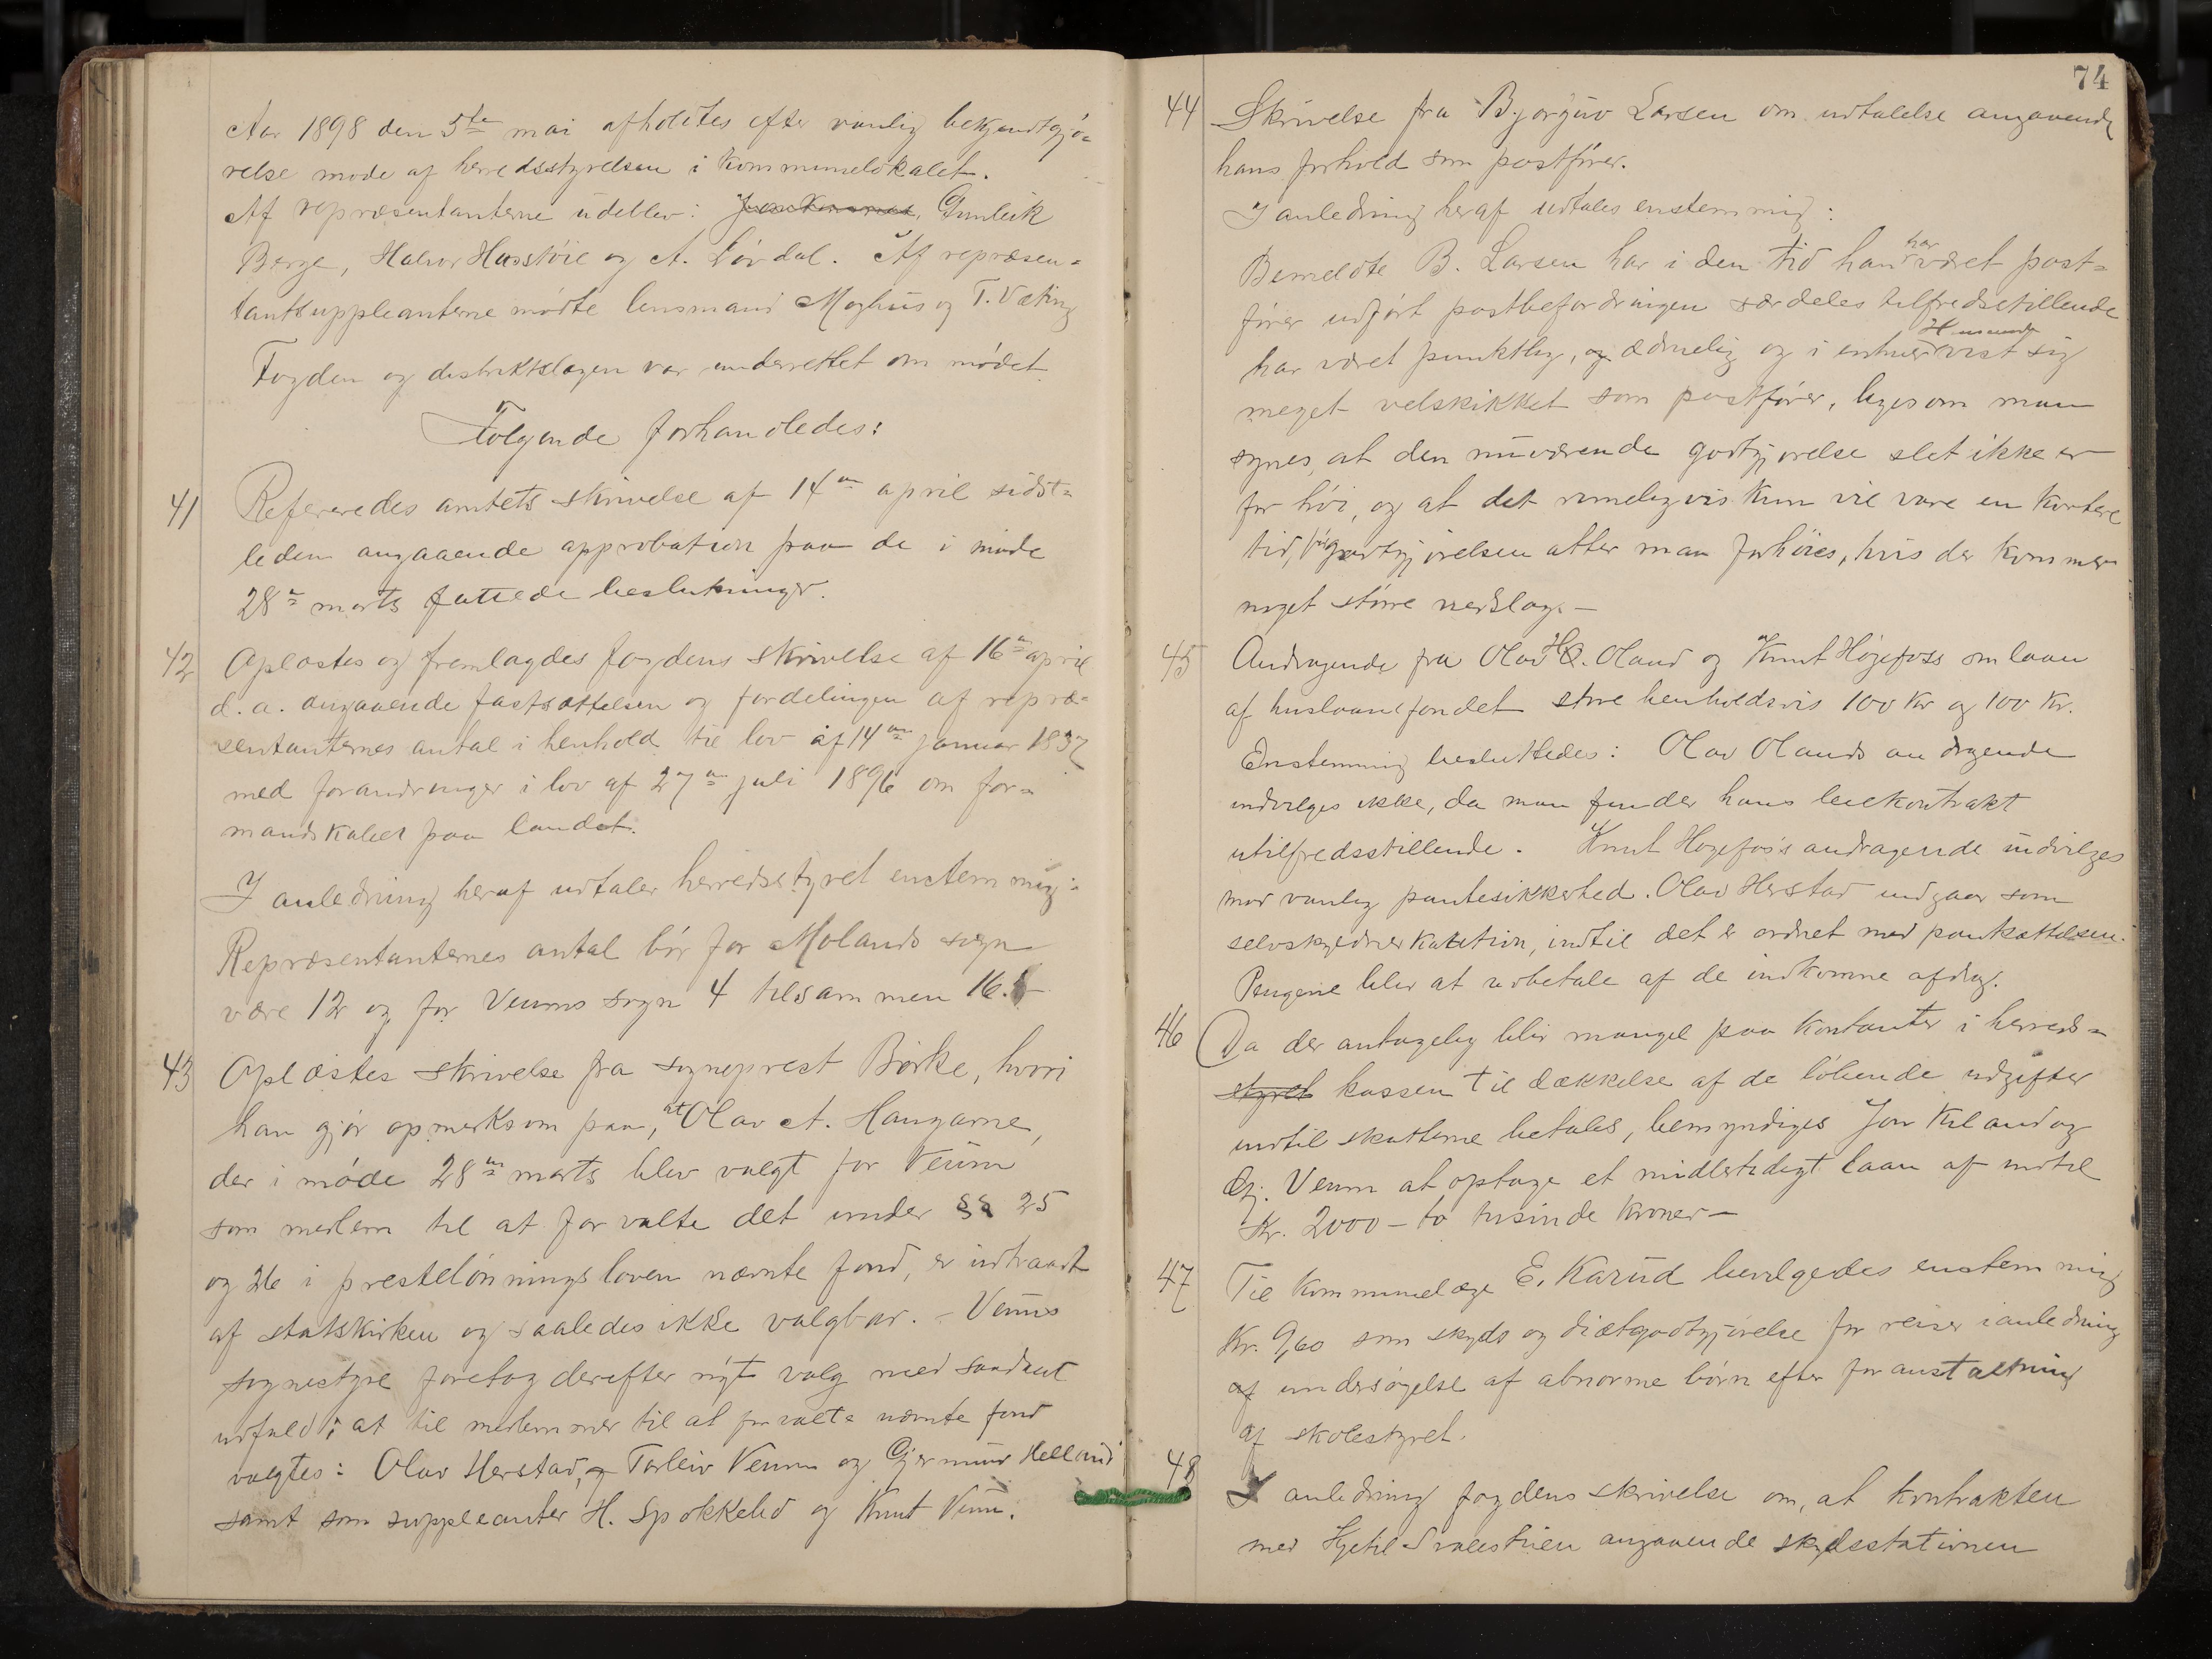 Aar 1898 den 5te mai afholdtes efter vanlig bekjendtgjø=
relse møde af herredsstyrelsen i Kommunelokalet.
Af repræsentanterne udeblev: Gunleik
Berge, Halvor Husstøil og A. Lørdal. Af repræsen=
tantsuppleanterne mødte lensmand Moghus og T. Væting
Fogden og distriktslægen var underrettet om mødet.
Følgende forhandledes:
41 Refereredes amtets skrivelse af 14de april sidst=
leden angaaende approbation paa de i møde
28de marts fattede beslutninger.
42 Oplæstes og fremlagdes fogdens skrivelse af 16de april
d. a. angaaende fastsættelsen og fordelingen af repræ=
sentanternes antal i henhold til lov af 14de januar 1837
med forandringer i lov af 27de juli 1896 om for=
mandskaber paa landet.
I anledning heraf udtaler herredsstyret enstemmig:
Repræsentanternes antal bør for Molands sogn
være 12 og for Veums sogn 4 tilsammen 16.
43 Oplæstes skrivelse fra sogneprest Børke, hvori
han gjør opmerksom paa, at Olav A. Haugarne,
der i møde 28de marts blev valgt for Veum
som medlem til at forvalte det under §§ 25
og 26 i prestelønningsloven nævnte fond, er udtraadt
af statskirken og saaledes ikke valgbar. – Veums
sognestyre foretog derefter nyt valg med saadant
udfald; at til medlemmer til at forvalte nævnte fond
valgtes: Olav Herstad, og Torleiv Veum og Gjermund Helland
samt som suppleanter H. Spokkelid og Knut Veum.
74
44 Skrivelse fra Bjørguv Larsen om udtalelse angaaende
hans forhold som postfører.
I anledning heraf udtales enstemmig:
Bemeldte B. Larsen har i den tid han har været post=
fører udført postbefordringen særdeles tilfredsstillende
har været punktlig, og ædruelig og i enhver Henseende vist sig
meget velskikket som postfører, ligesom man
synes, at den nuværende godtgjørelse slet ikke er
for høi, og at det rimeligvis kun vil vare en kortere
tid, før godtgjørelsen atter maa forhøies, hvis der kommer
noget større nedslag. –
45 Andragende fra Olav H. Oland og Knut Høgefoss om laan
af huslaanefondet store henholdsvis 100 kr og 100 Kr.
Enstemmig besluttedes: Olav Olands andragende
indvilges ikke, da man finder hans leiekontrakt
utilfredsstillende. Knut Høgefos's andragende indvilges
mod vanlig pantesikkerhed. Olav Herstad indgaar som
selvskyldnerkaution, indtil det er ordnet med pantsættelsen.
Pengene blev at udbetale af de indkomne afdrag.
46 Da der antagelig blir mangel paa Kontanter i herreds=
styret kassen til dækkelse af de løbende udgifter
indtil skatterne betales, bemyndiges Jon Kiland og
Gj. Veum at optage et midlertidigt laan af indtil
Kr. 2000 – to tusinde kroner –
47 Til kommunelæge E. Kaarud bevilgedes enstemmig
Kr. 9,60 som skyds og diætgodtgjørelse for reiser i anledning
af undersøgelse af abnorme børn efter foranstaltning
af skolestyret.
48 I anledning fogdens skrivelse om, at kontrakten
med Kjetil angaaende skydsstationen